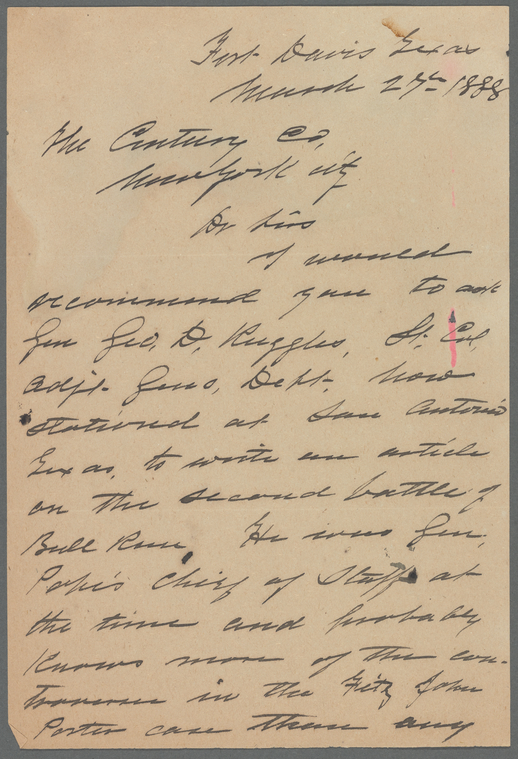 Fort Davis Texas
March 27th 1888
The Century Co,
New York City
Dr Sirs
I would
recommend you to ask
Gen Geo. D. Ruggles, Lt. Col,
Adjt. Gens, Dept. now
stationed at San Antonio
Texas, to write an article
on the second battle of
Bull Run. He was Gen.
Pope's Chief of Staff at
the time and probably
knows more of the con-
troversie in the Fitz John
Porter case than any